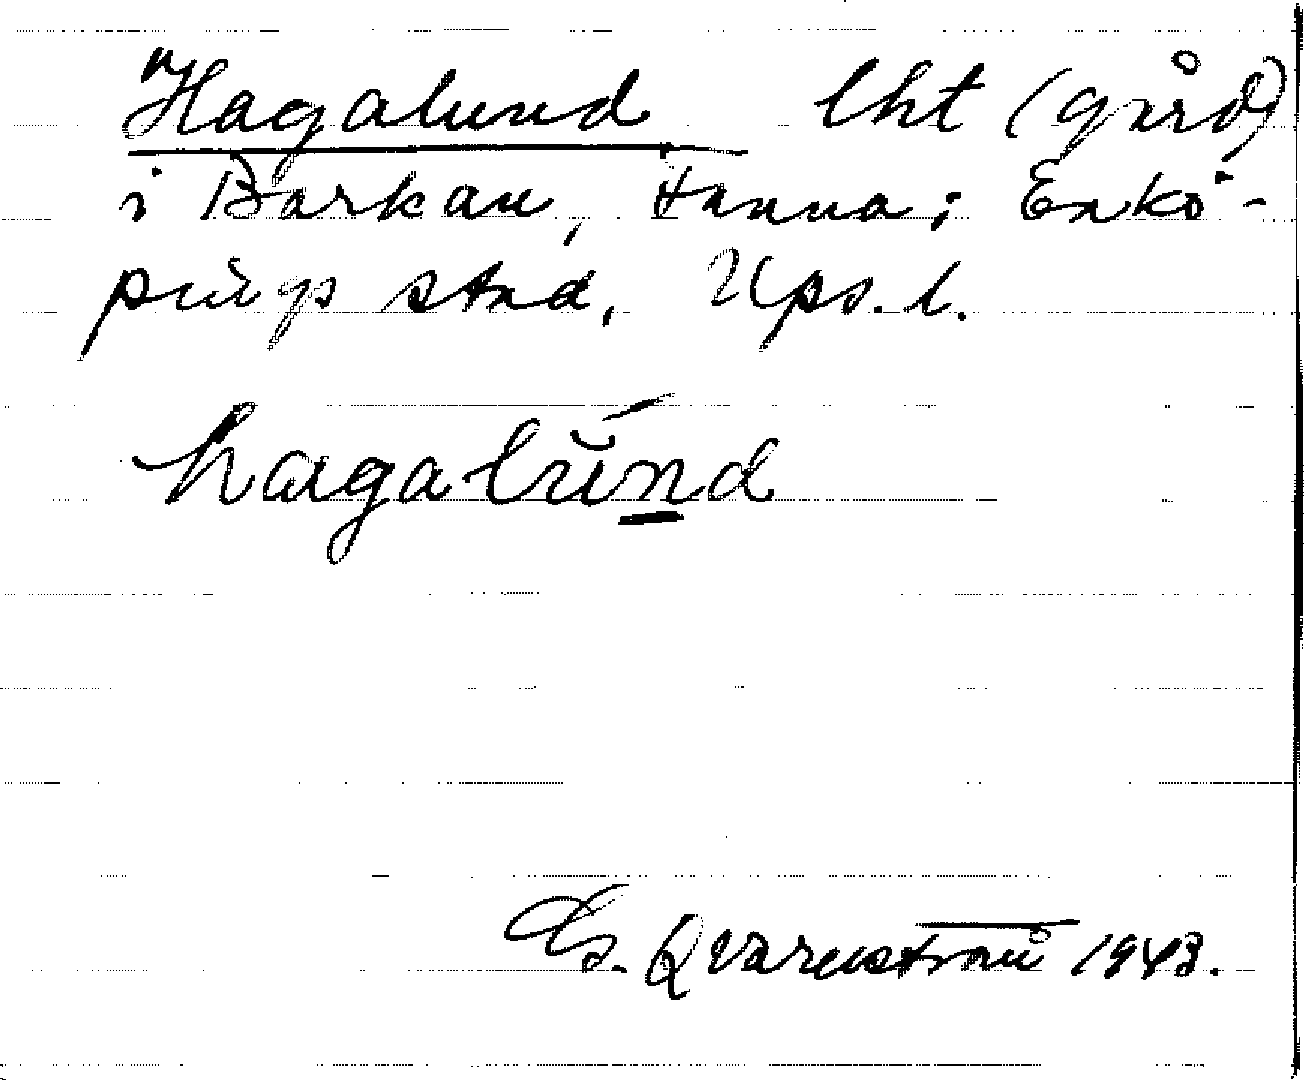 Hagalund lht (gård)
i Barkan, Hanna; Enkö-
pings stad, Ups. l.
hagalŭnd
G. Qvarnström 1943.